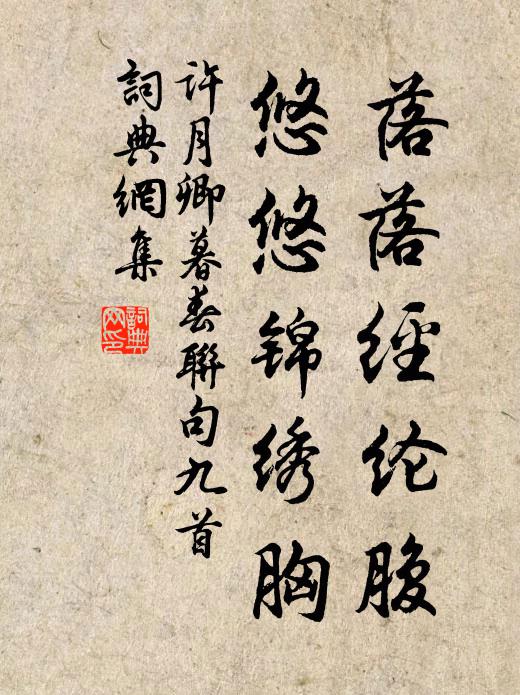 落落經纶腹
悠悠锦绣胸
許月卿暮春聯句九首
詞典網集
詞典网印